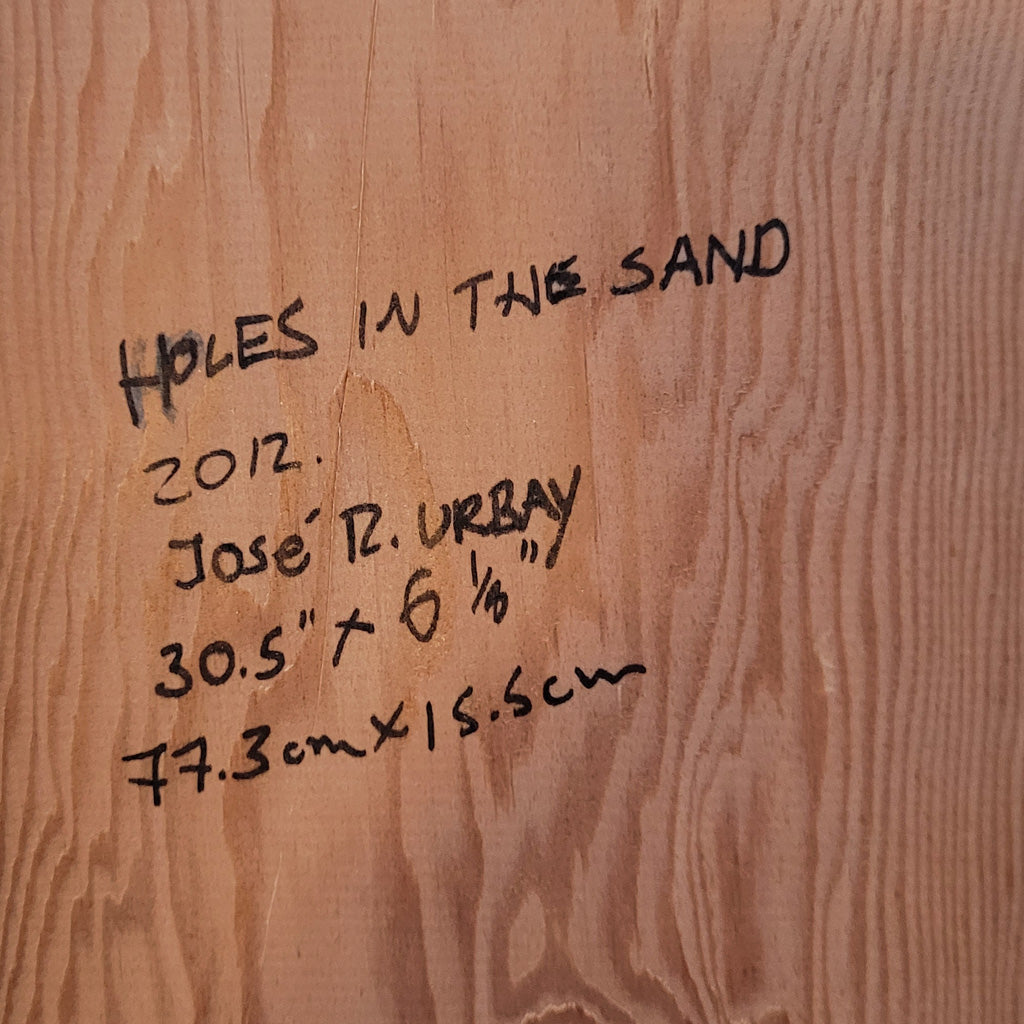 HOLES IN THE SAND
2012.
José R. URBAY
30.5" x 6 1/8"
77.3cm x 15.5cm